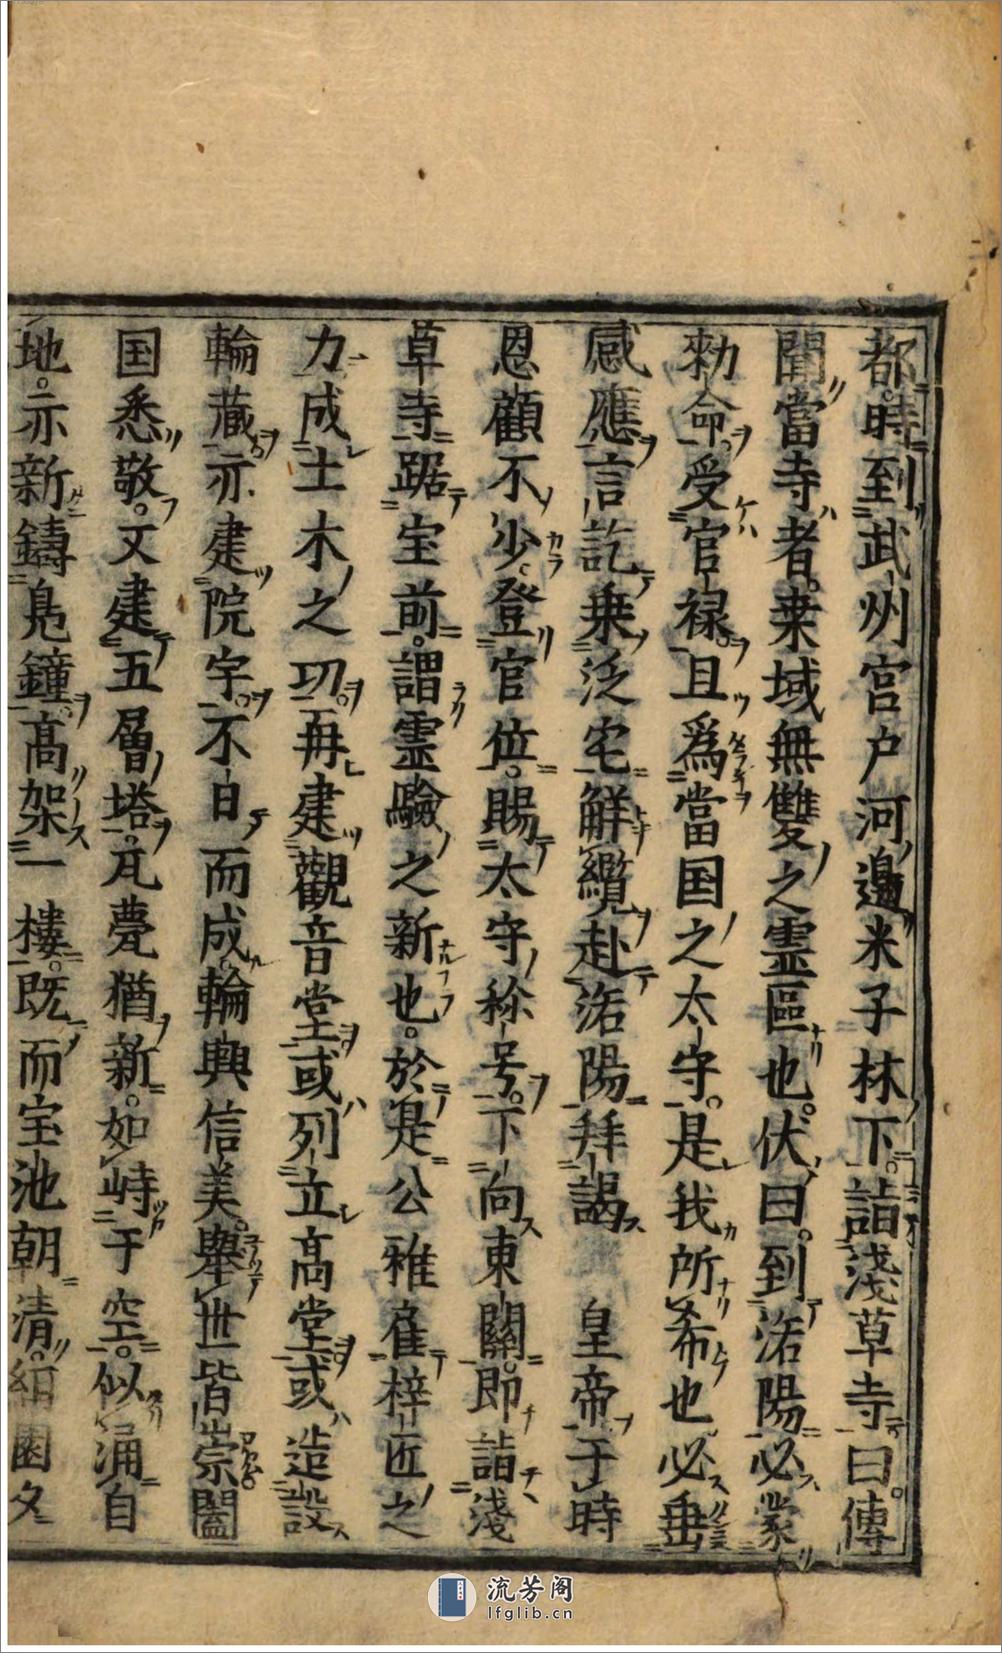 都時到武州宮戸河邉米子林下詣淺草寺曰傳
聞當寺者桒域無雙之霊區也伏曰到洛陽必蒙
勑命受官禄且爲當国之太守是我所希也必垂
感應言訖乗泛宅解纜赴洛陽拜謁　皇帝于時
恩顧不少登官位賜太守称号下向東關即詣淺
草寺踞宝前謂霊驗之新也於是公雅雇梓匠之
力成土木之功再建觀音堂或列立髙堂或造設
輪藏亦建院宇不日而成輪奐信美舉世皆崇闔
国悉敬又建五層塔瓦甍猶新如峙于空似涌自
地亦新鑄鳬鐘髙架一樓既而宝池朝清紺園夕
流芳阁
lfglib.cn